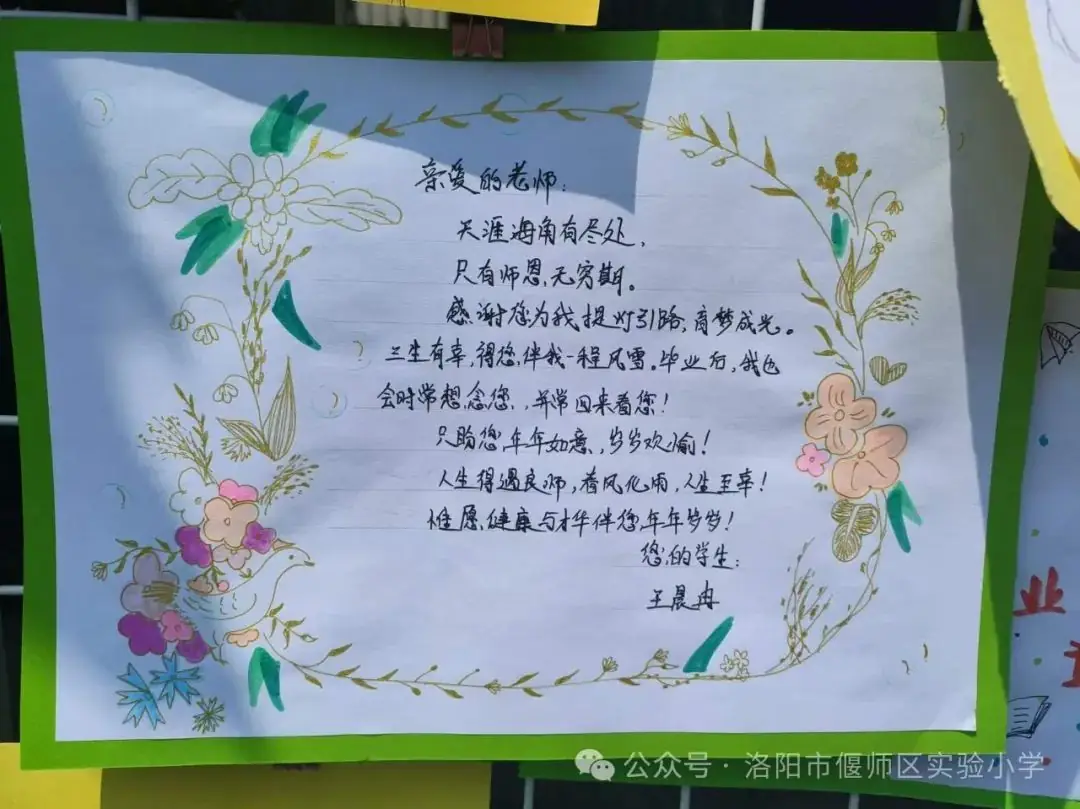 亲爱的老师：
天涯海角有尽处，
只有师恩无穷期。
感谢您为我提灯引路，育梦成光。
三生有幸，得您伴我一程风雪。毕业后，我也
会时常想念您，并常回来看您！
只盼您年年如意，岁岁欢愉！
人生得遇良师，春风化雨，人生至幸！
惟愿健康与才华伴您年年岁岁！
您的学生：
王晨冉
业
公众号·洛阳市偃师区实验小学